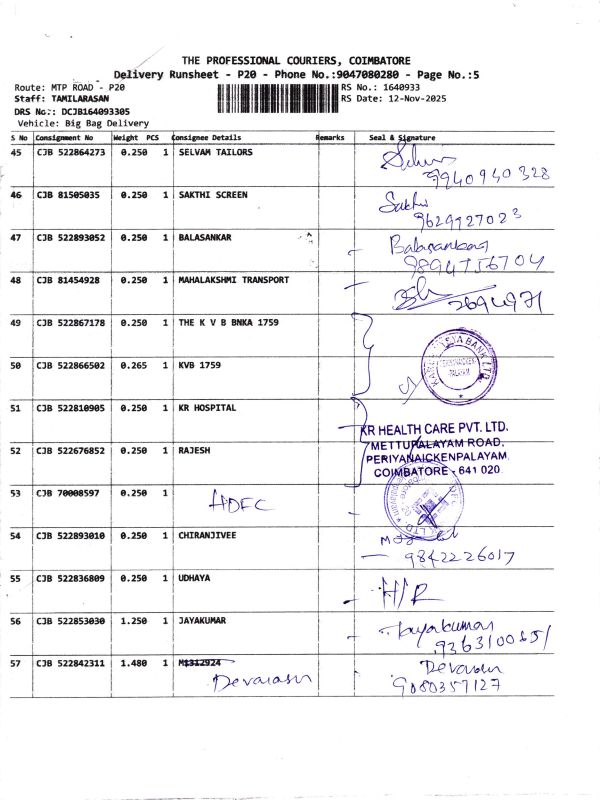 THE PROFESSIONAL COURIERS, COIMBATORE
Delivery Runsheet - P20 - Phone No.:9047080280 - Page No.:5
Route: MTP ROAD - P20 RS No.: 1640933
Staff: TAMILARASAN RS Date: 12-Nov-2025
DRS No.: DCJB164093305
Vehicle: Big Bag Delivery
S No Consignment No Weight PCS Consignee Details Remarks Seal & Signature
45 CJB 522864273 0.250 1 SELVAM TAILORS
9940940328
46 CJB 81505035 0.250 1 SAKTHI SCREEN Sakthi
9629927023
47 CJB 522893052 0.250 1 BALASANKAR Balasankar
9894756704
48 CJB 81454928 0.250 1 MAHALAKSHMI TRANSPORT
49 CJB 522867178 0.250 1 THE K V B BNKA 1759
50 CJB 522866502 0.265 1 KVB 1759
51 CJB 522810905 0.250 1 KR HOSPITAL
KR HEALTH CARE PVT. LTD.
METTUPALAYAM ROAD,
52 CJB 522676852 0.250 1 RAJESH PERIYANAICKENPALAYAM
COIMBATORE - 641 020
53 CJB 70008597 0.250 1 HDFC
54 CJB 522893010 0.250 1 CHIRANJIVEE
9842226017
55 CJB 522836809 0.250 1 UDHAYA H/R
56 CJB 522853030 1.250 1 JAYAKUMAR Jayakumar
57 CJB 522842311 1.480 1 Devarasu
9080357127